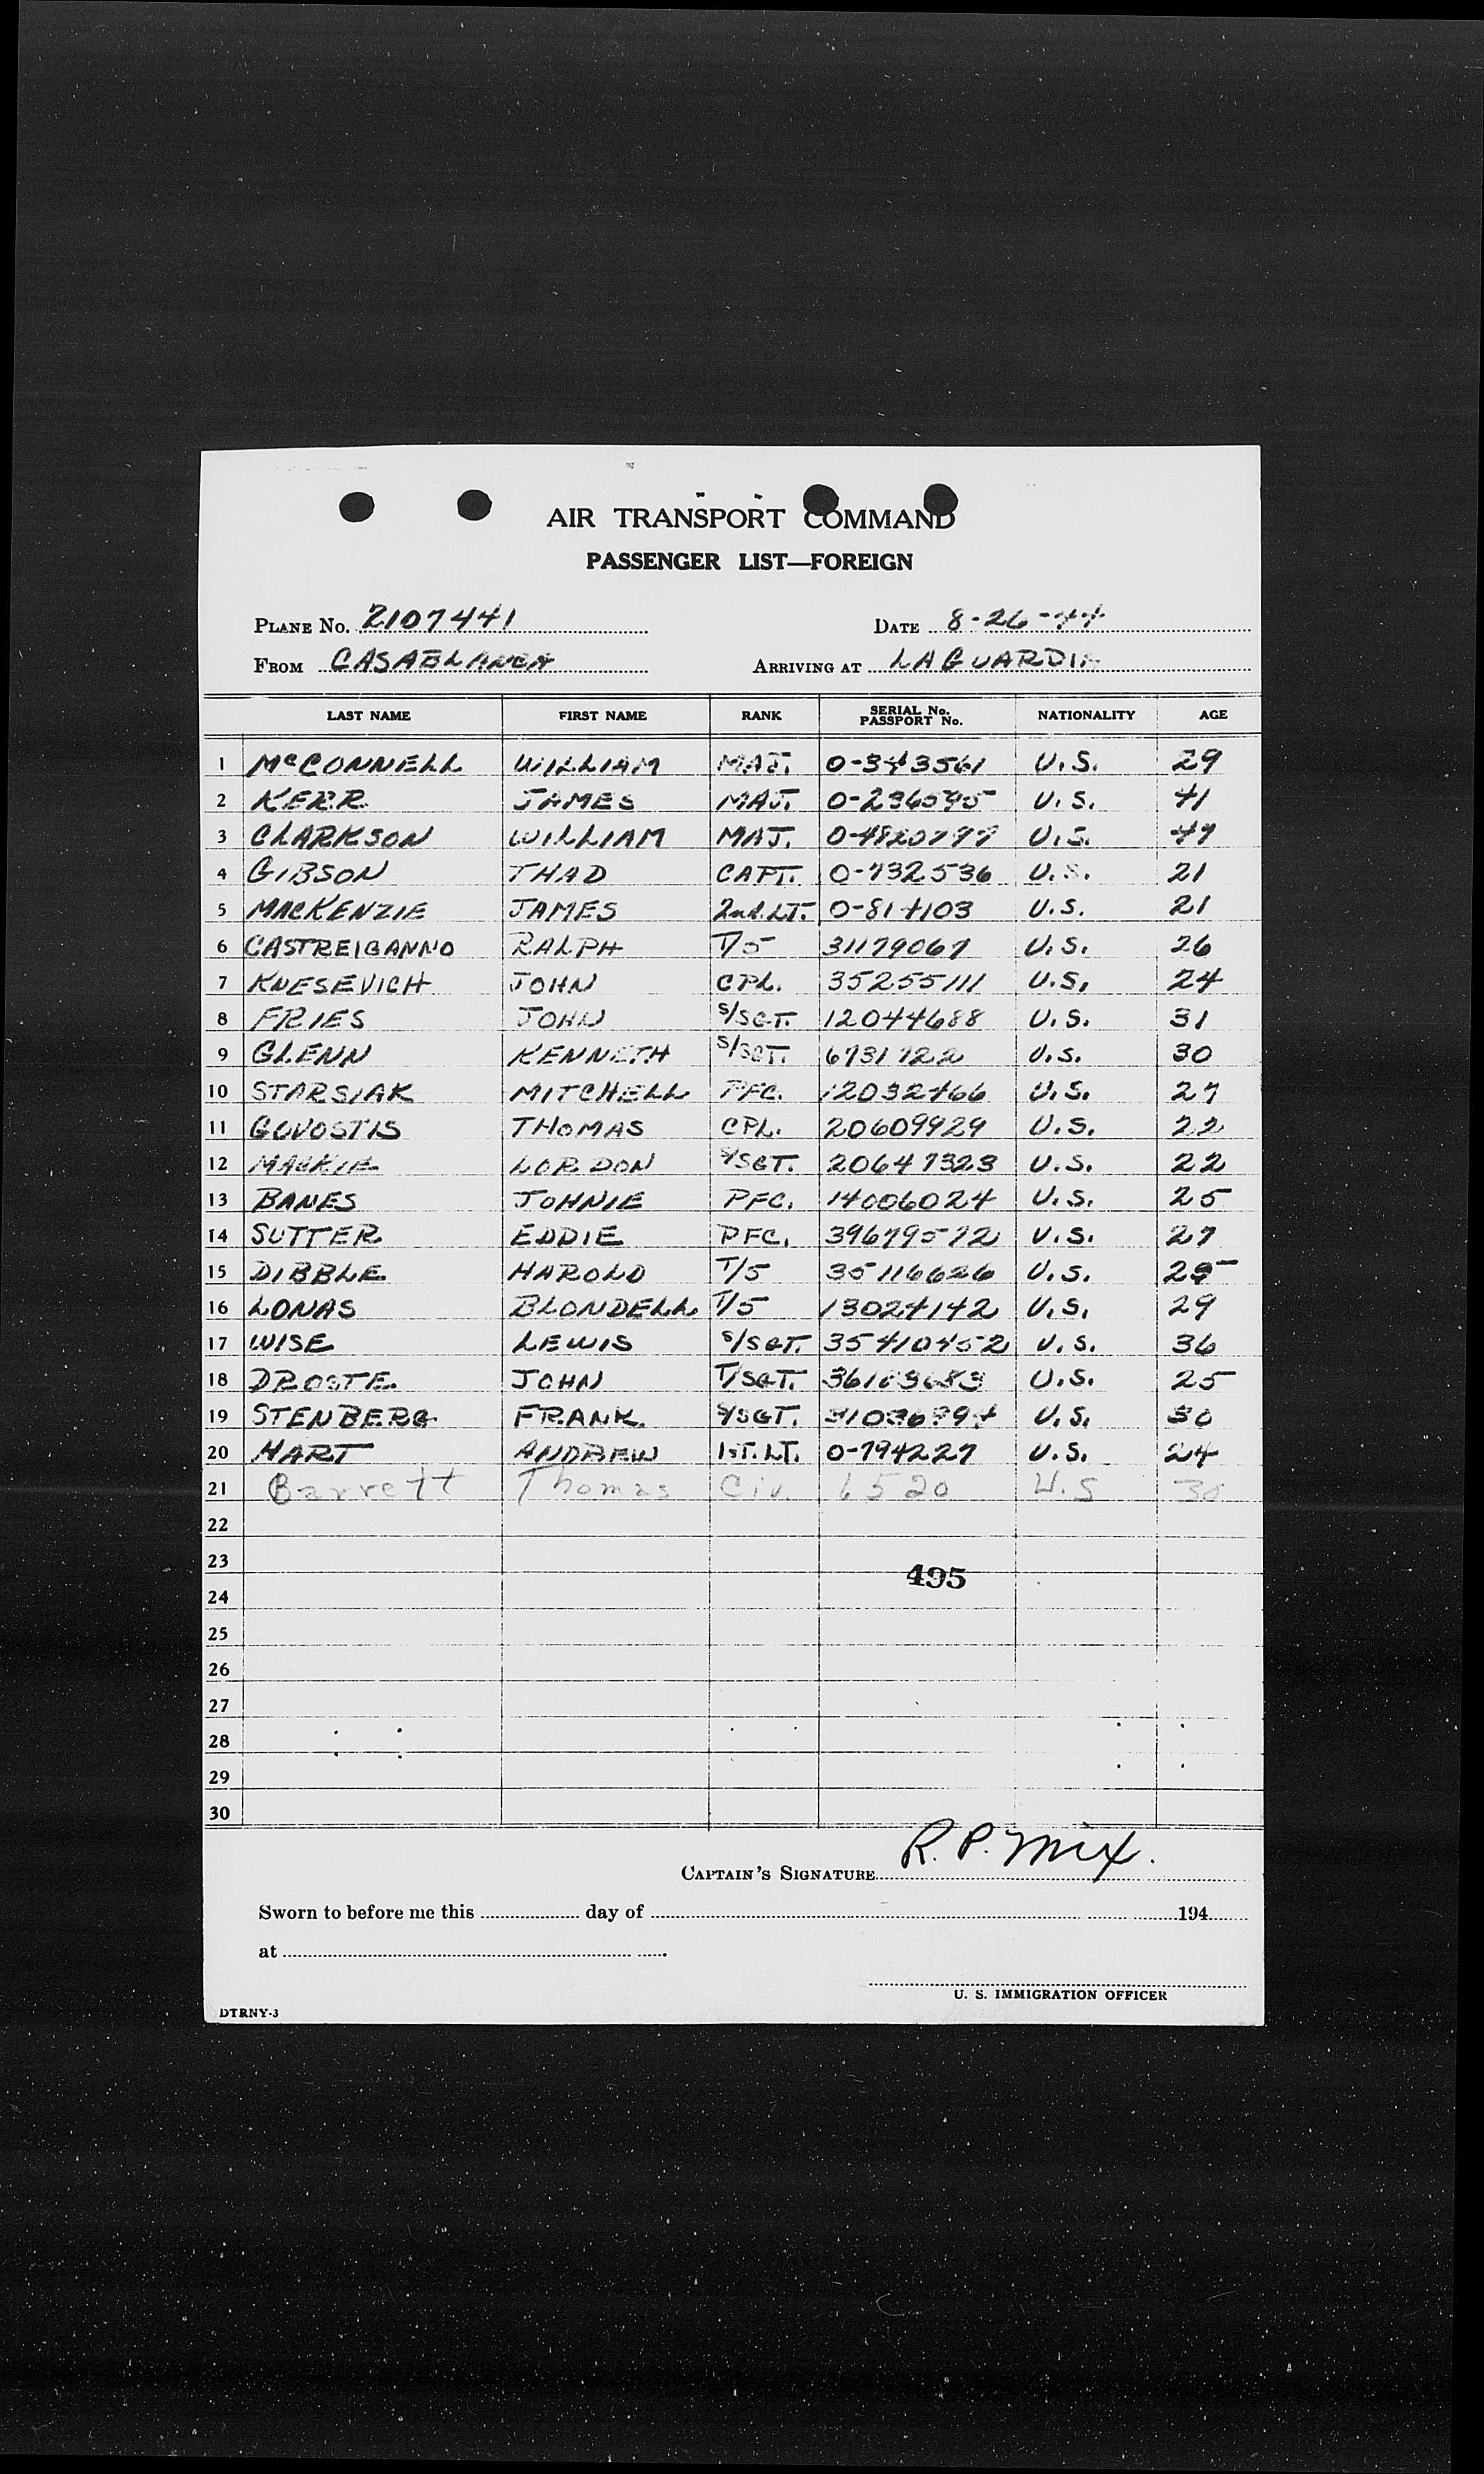 AIR TRANSPORT COMMAND
PASSENGER LIST—FOREIGN
PLANE No. 2107441 DATE 8-26-44
FROM CASABLANCA ARRIVING AT LAGUARDIA
LAST NAME FIRST NAME RANK SERIAL No. PASSPORT No. NATIONALITY AGE
1 McCONNELL WILLIAM MAJ. 0-343561 U.S. 29
2 KERR JAMES MAJ. U.S. 41
3 CLARKSON WILLIAM MAJ. U.S. 47
4 GIBSON THAD CAPT. 0-732536 U.S. 21
5 MACKENZIE JAMES 2nd.LT. 0-814103 U.S. 21
6 CASTREIGANNO RALPH T/5 31179067 U.S. 26
7 KNESEVICH JOHN CPL. 35255111 U.S. 24
8 FRIES JOHN S/SGT. 12044688 U.S. 31
9 GLENN KENNETH S/SGT. 6731722 U.S. 30
10 STARSIAK MITCHELL PFC. 12032466 U.S. 27
11 GOVOSTIS THOMAS CPL. 20609929 U.S. 22
12 MACKIE LORDON S/SGT. 20647323 U.S. 22
13 BANES JOHNIE PFC. 14006024 U.S. 25
14 SUTTER EDDIE PFC. 39679572 U.S. 27
15 DIBBLE HAROLD T/5 35116626 U.S.
16 LONAS BLONDELL T/5 13024142 U.S. 29
17 WISE LEWIS S/SGT. 35410452 U.S. 36
18 DROSTE JOHN T/SGT. U.S. 25
19 STENBERG FRANK. S/SGT. U.S. 30
20 HART ANDREW 1ST. LT. 0-794227 U.S. 24
21 Barrett Thomas Civ. 6520 U.S 30
22
23
495
24
25
26
27
28
29
30
CAPTAIN'S SIGNATURE R. P. Mix.
Sworn to before me this day of 194
at
U. S. IMMIGRATION OFFICER
DTRNY-3